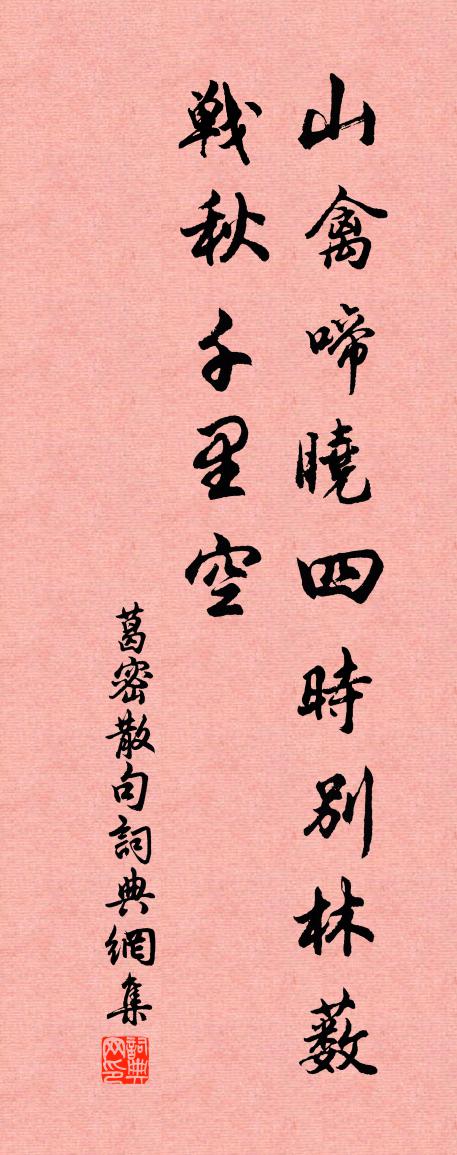 山禽啼曉四時別林薮
戰秋千里空
葛密散句詞典網集
詞典网印